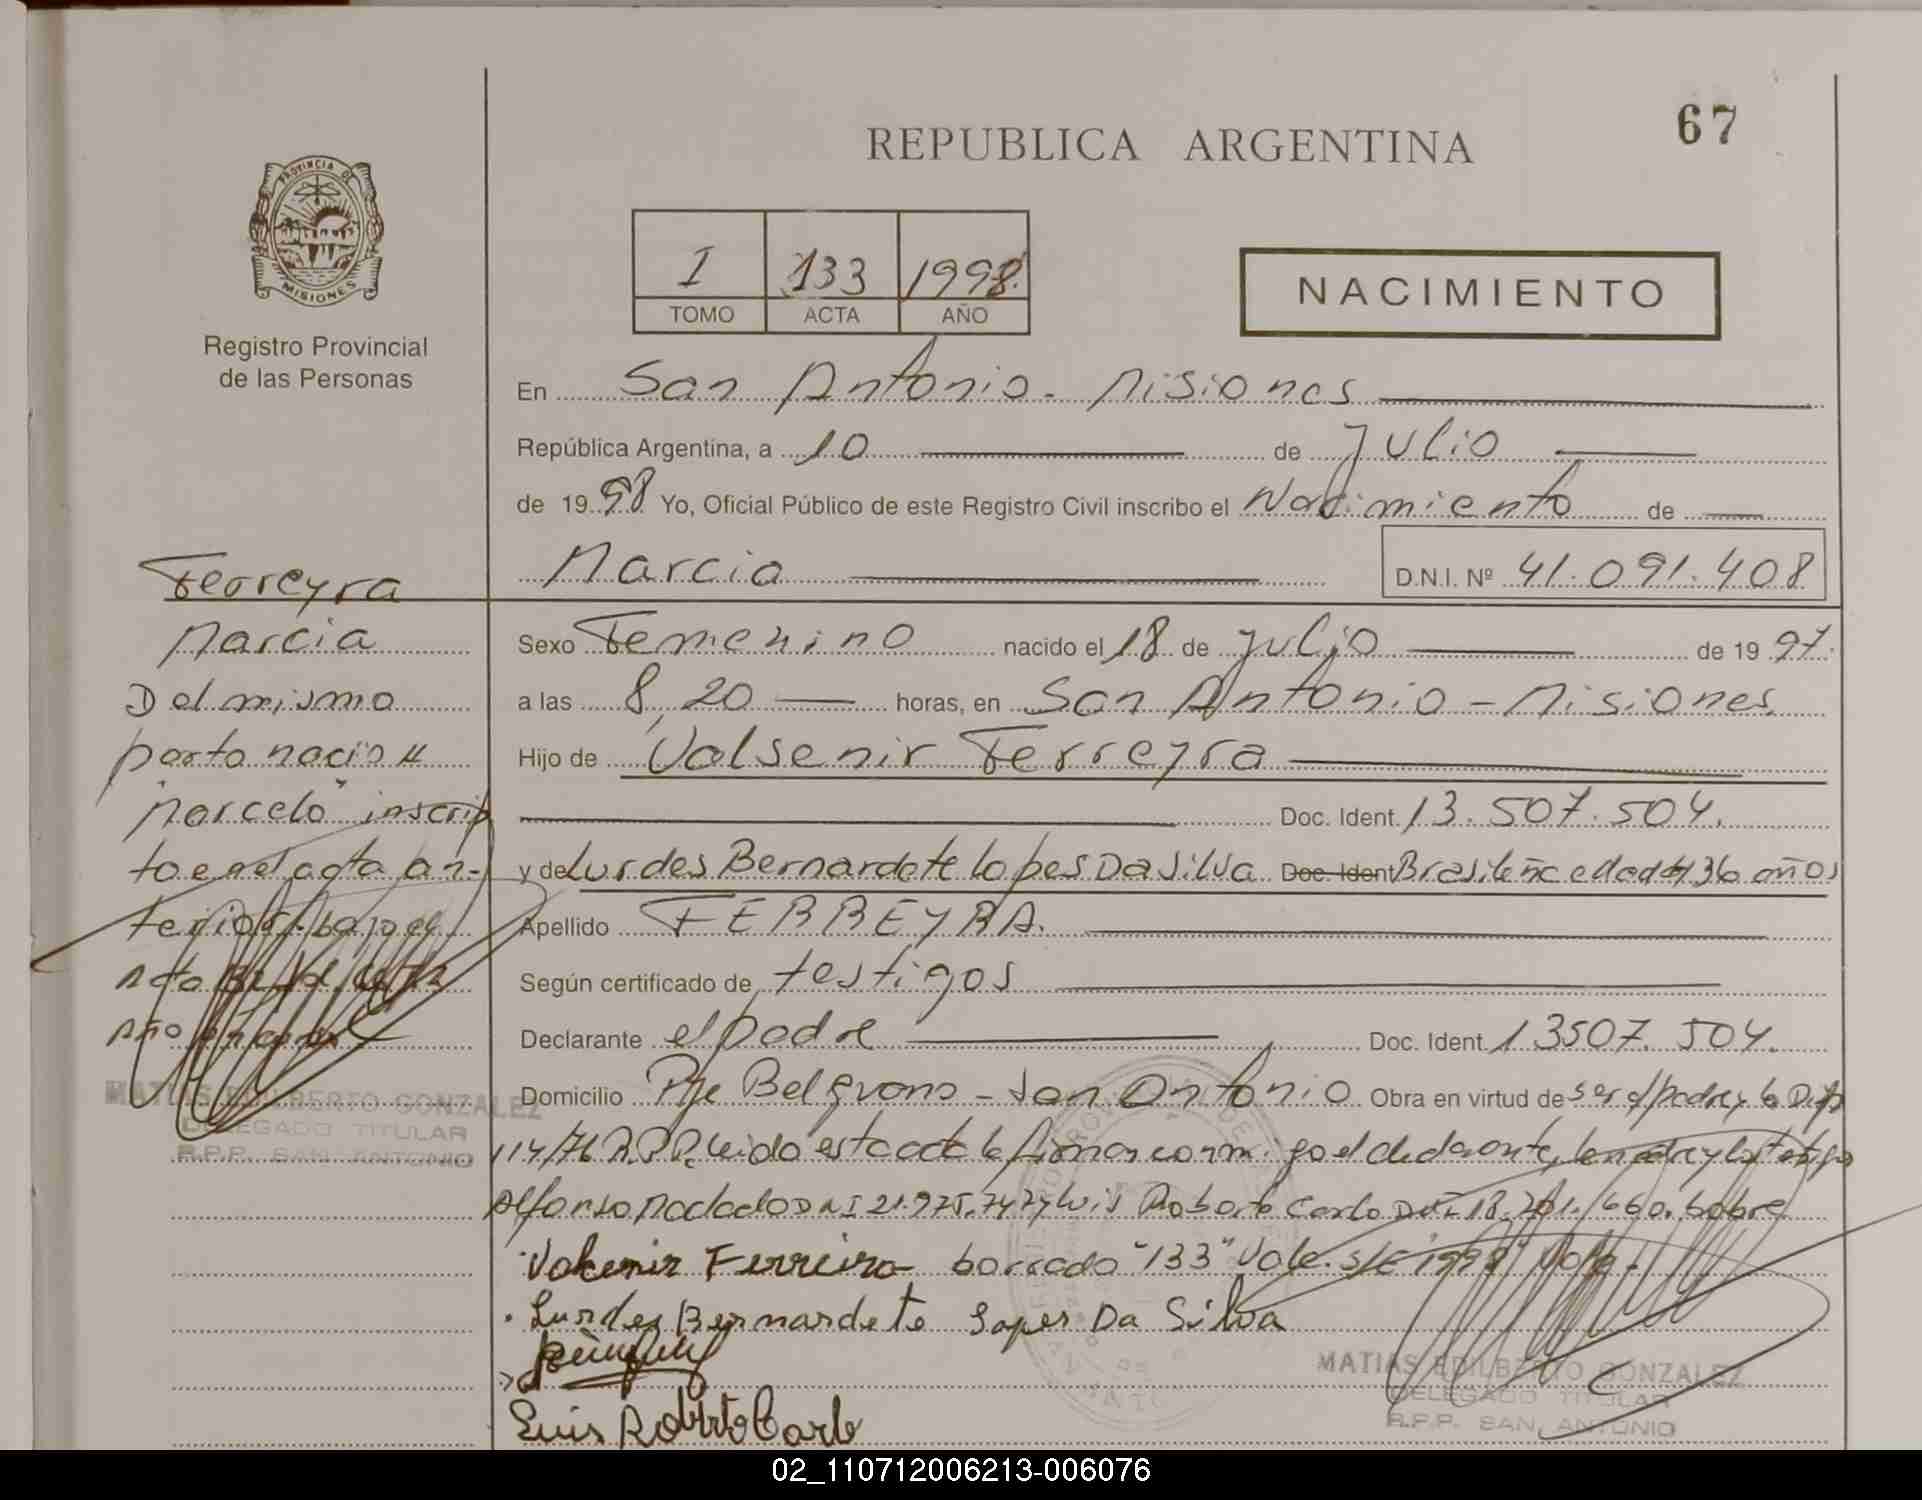 67
REPUBLICA ARGENTINA
PROVINCIA DE
MISIONES
Registro Provincial
de las Personas
I 133 1998
TOMO ACTA AÑO
NACIMIENTO
En San Antonio - Misiones
República Argentina, a 10 de Julio
de 19 98 Yo, Oficial Público de este Registro Civil inscribo el Nacimiento de
Marcia D.N.I. Nº 41.091.408
Sexo Femenino nacido el 18 de Julio de 19 97.
a las 8,20 horas, en San Antonio - Misiones
Hijo de Valsenir Ferreyra
Doc. Ident. 13.507.504.
y de Lurdes Bernardete Lopes Da Silva Doc. Ident Brasileña edad 36 años
Apellido FERREYRA.
Según certificado de testigos
Declarante el padre Doc. Ident. 13507.504.
Domicilio Pje Belgrano - San Antonio Obra en virtud de ser el padre y la
114/76 R.P.P. Leido esta acta la firman conmigo el declarante, la madre y los testigos
Alfonso DNI 21.975.747 y Luis Roberto Carlo DNI 18. 660. Sobre
Valsenir Ferreira borrado "133" Vale. S/E 1998 Vale.
Lurdes Bernardete Lopes Da Silva
Luis Roberto Carlo
MATIAS EDILBERTO GONZALEZ
DELEGADO TITULAR
R.P.P. SAN ANTONIO
Ferreyra
Marcia
Del mismo
parto nacio
"Marcelo" inscrip
to en el acta an-
terior bajo el
Acta
Año
MATIAS EDILBERTO GONZALEZ
DELEGADO TITULAR
R.P.P. SAN ANTONIO
02_110712006213-006076